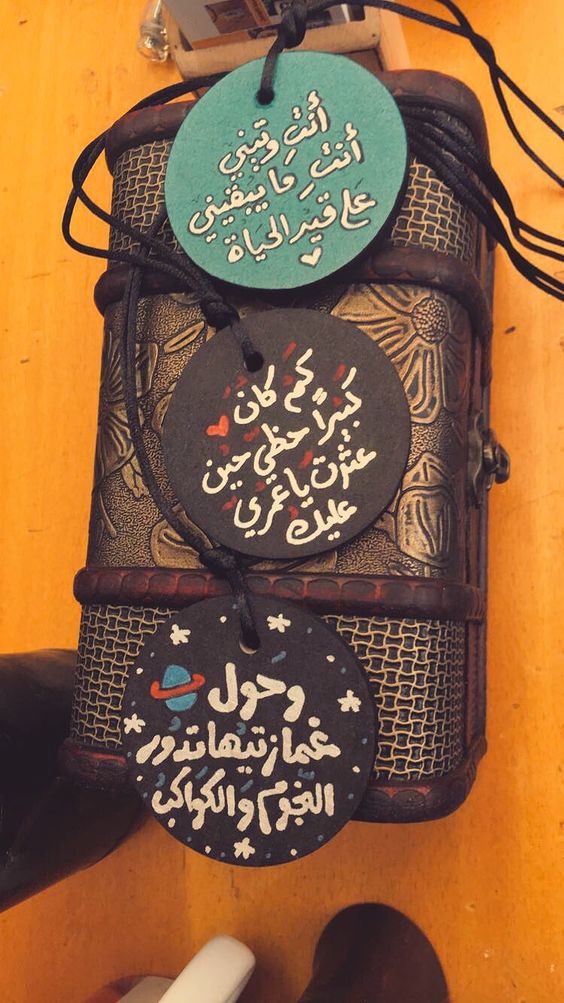 أنتِ وتبني
أنتِ ما يبقيني
على قيد الحياة
كَم كان
كبيراً حظي حين
عثرت يا عمري
عليك
وحول
غمازتيها تدور
النجوم والكواكب